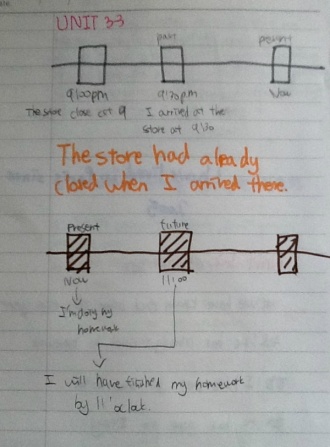 UNIT 33
past
present
9:00pm
9:30pm
Now
The store close at 9
I arrived at the
store at 9:30
The store had already
closed when I arrived there.
Present
future
Now
11:00
I'm doing my
homework
I will have finished my homework
by 11 o'clock.